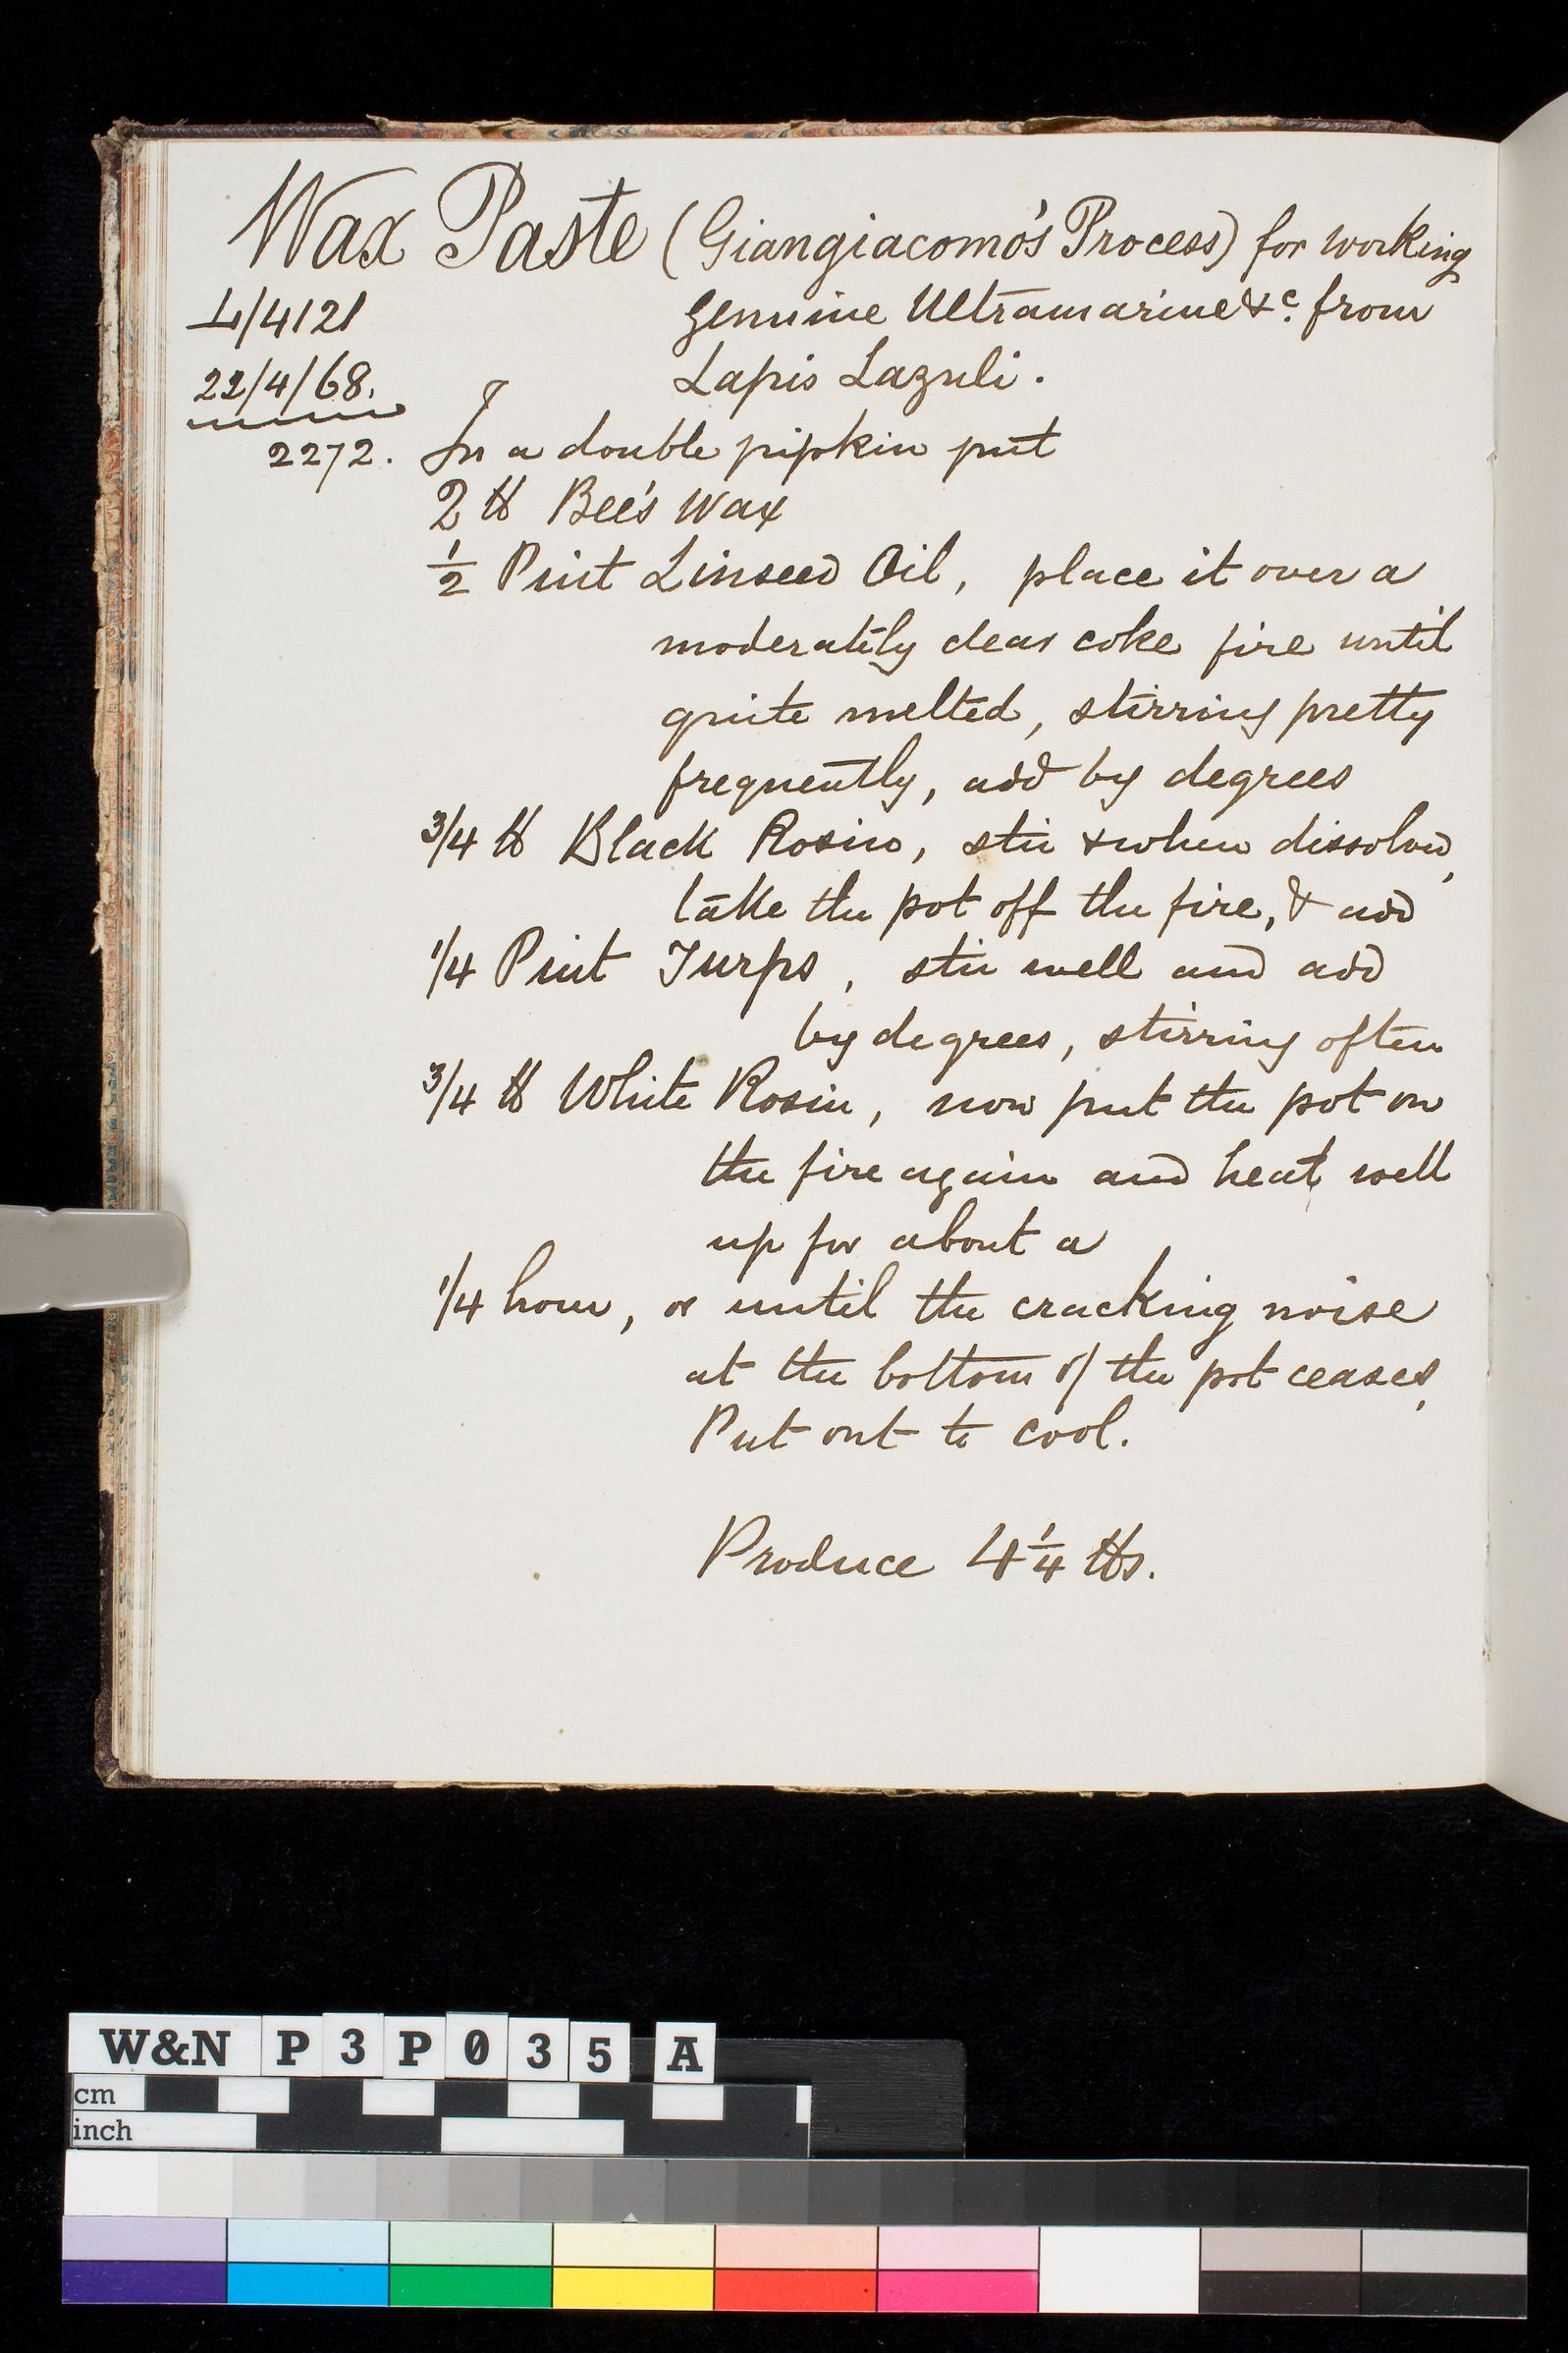 Wax Paste (Giangiacomo's Process) for working
L/4121 genuine Ultramarine &c. from
22/4/68. Lapis Lazuli.
2272. In a double pipkin put
2 ℔ Bee's Wax
1/2 Pint Linseed Oil, place it over a
moderately clear coke fire until
quite melted, stirring pretty
frequently, add by degrees
3/4 ℔ Black Rosin, stir & when dissolved,
take the pot off the fire, & add
1/4 Pint Turps, stir well and add
by degrees, stirring often
3/4 ℔ White Rosin, now put the pot on
the fire again and heat well
up for about a
1/4 hour, or until the cracking noise
at the bottom of the pot ceases,
Put out to cool.
Produce 4 1/4 ℔s.
W&N P3P035 A
cm
inch